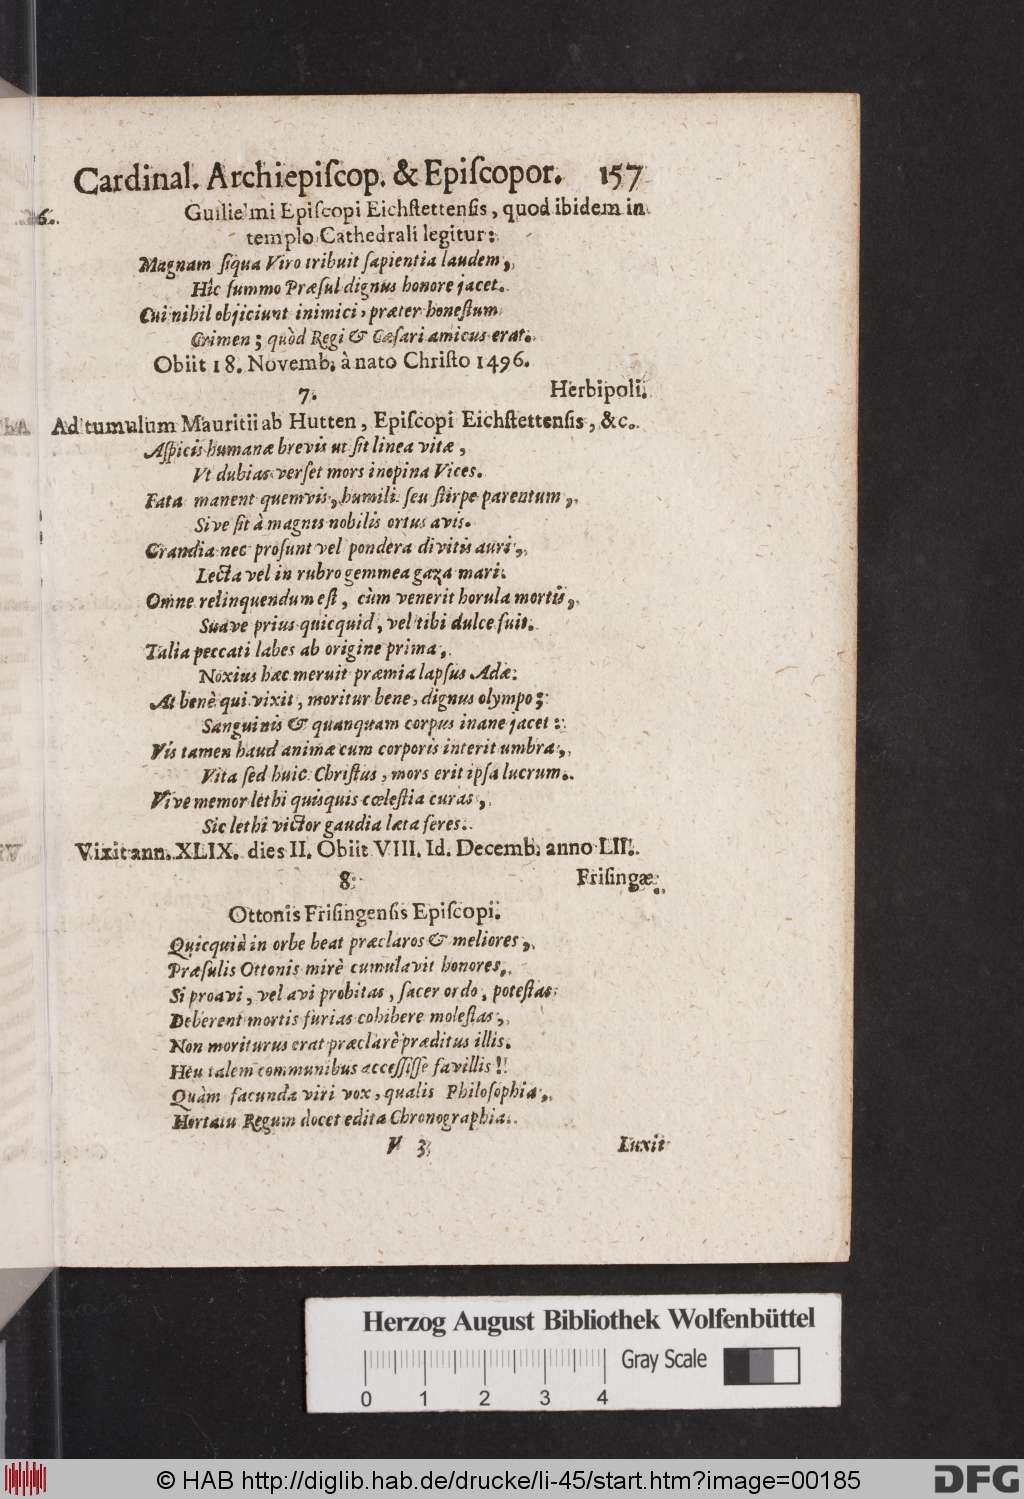 Cardinal. Archiepiſcop. & Epiſcopor. 157
6. Guilielmi Epiſcopi Eichſtettenſis, quod ibidem in
templo Cathedrali legitur:
Magnam ſiqua Viro tribuit ſapientia laudem,
Hîc ſummo Præſul dignus honore jacet.
Cui nihil objiciunt inimici, præter honeſtum
Crimen; quòd Regi & Cæſari amicus erat.
Obiit 18. Novemb. à nato Chriſto 1496.
7. Herbipoli.
Ad tumulum Mauritii ab Hutten, Epiſcopi Eichſtettenſis, &c.
Aſpicis humanæ brevis ut ſit linea vitæ,
Vt dubias verſet mors inopina Vices.
Fata manent quemvis, humili ſeu ſtirpe parentum,
Sive ſit à magnis nobilis ortus avis.
Grandia nec proſunt vel pondera divitis auri,
Lecta vel in rubro gemmea gaza mari.
Omne relinquendum eſt, cùm venerit horula mortis,
Suave prius quicquid, vel tibi dulce fuit.
Talia peccati labes ab origine prima,
Noxius hæc meruit præmia lapſus Adæ.
At benè qui vixit, moritur bene, dignus olympo;
Sanguinis & quanquam corpus inane jacet:
Vis tamen haud animæ cum corporis interit umbra,
Vita ſed huic Chriſtus, mors erit ipſa lucrum.
Vive memor lethi quisquis cœleſtia curas,
Sic lethi victor gaudia læta feres.
Vixit ann. XLIX. dies II. Obiit VIII. Id. Decemb. anno LII.
8. Friſingæ.
Ottonis Friſingenſis Epiſcopi.
Quicquid in orbe beat præclaros & meliores,
Præſulis Ottonis mirè cumulavit honores.
Si proavi, vel avi probitas, ſacer ordo, poteſtas
Deberent mortis furias cohibere moleſtas,
Non moriturus erat præclarè præditus illis.
Heu talem communibus acceſſiſſe favillis!
Quàm facunda viri vox, qualis Philoſophia,
Hortatu Regum docet edita Chronographia.
V 3 Luxit
Herzog August Bibliothek Wolfenbüttel
Gray Scale
0 1 2 3 4
© HAB http://diglib.hab.de/drucke/li-45/start.htm?image=00185
DFG